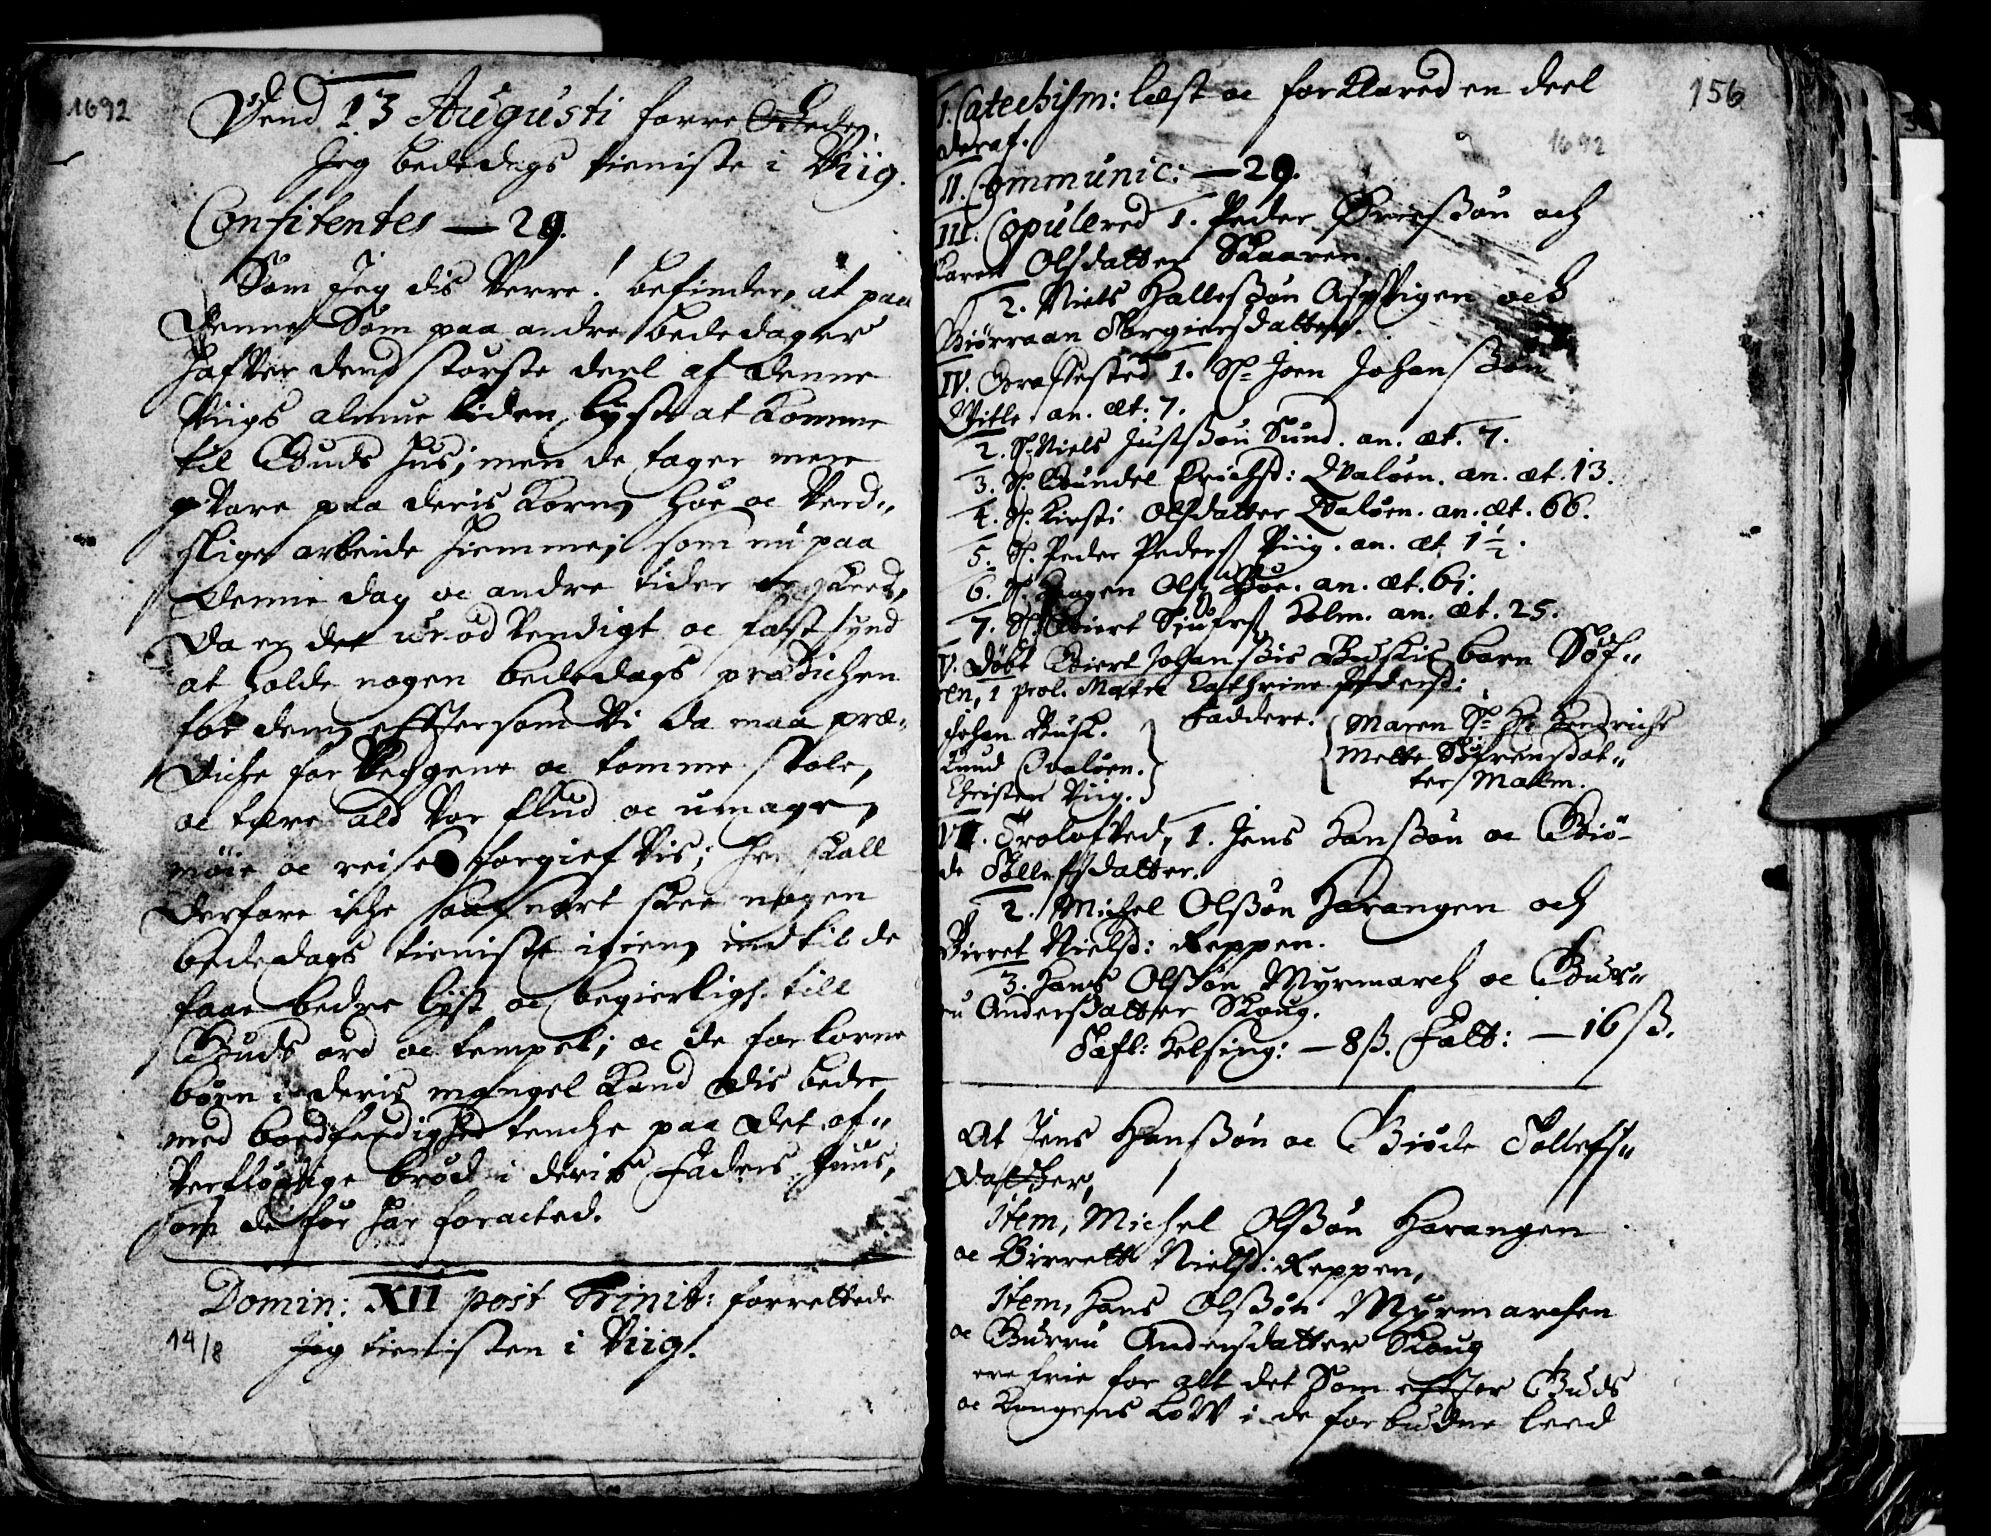 1692
Dend 13 Augusti forretted
Jeg bededags tieniste i Viig.
Confitentes — 29.
Som Jeg dis verre! befinder, at paa
denne som paa andre bededager
hafver dend største deel af denne
Viigs almue liden lyst at komme
til Guds Huus; men de tager mere
vare paa deris korn, høe oc verd-
slige arbeide hiemme; som nu paa
denne dag oc andre tider er skeed,
da er det unødvendigt oc fast synd
at holde nogen bededags prædichen
for dem, effttersom vi da maa præ-
diche for veggene oc tomme stole,
oc tære ald vor fliid oc umage,
møie oc reise forgiefvis; her skall
derfore iche saa snart skee nogen
bededags tieniste igien, indtil de
faar bedre lyst oc begierligh. till
Guds ord oc tempel; oc de forlorne
børn i deris mangel kand dis bedre
med bodferdighed tenche paa det of-
verflødige brød i deris Faders Huus,
som de før har foracted.
Domin: XII post Trinit: forrettede
14/8 Jeg tienisten i Viig.
156
1692
I. Catechism: læst oc forklared en deel
deraf.
II. Communic: — 29.
III. Copulered 1. Peder Olsøn och
Karen Olsdatter Skaaren.
2. Niels Halleßøn Aspvigen och
Biørraan Torgiersdatter.
IV. Graffested 1. Sl. Joen Johanßøn
an. æt. 7.
2. Sl. Niels Justßøn Sund. an. æt. 7.
3. Sl. Gundel Erichsd: Qvaløen. an. æt. 13.
4. Sl. Kirsti Olsdatter Qvaløen. an. æt. 66.
5. Sl. Peder Peders. Viig. an. æt. 1½.
6. Sl. Haagen Ols. Boe. an. æt. 61.
7. Sl. Giert Siufrs. Holm. an. æt. 25.
V. Døbt Giert Johanßøns Buskis barn Søf-
ren, 1 prol. Matre Cathrine Pedersd:
Faddere.
Johan Busk.
Knud Qvaløen.
Christen Viig.
Maren Sl. Hr. Hendrichs
Mette Søfrensdat-
ter Malm.
VI. Trolofved, 1. Jens Hanßøn oc Giø-
de Tollefsdatter.
2. Michel Olßøn Harangen och
Birret Nielsd: Reppen.
3. Hans Olßøn Myrmarch oc Gur-
ru Andersdatter Skoug.
Tafl: Helsing: — 8 ß. Falt: — 16 ß.
At Jens Hanßøn oc Giøde Tollefs-
datter,
Item, Michel Olßøn Harangen
oc Birrette Nielsd: Reppen,
Item, Hans Olßøn Myrmarchen
oc Gurru Andersdatter Skoug
ere frie for alt det som effter Guds
oc Kongens Low i de forbudne leed